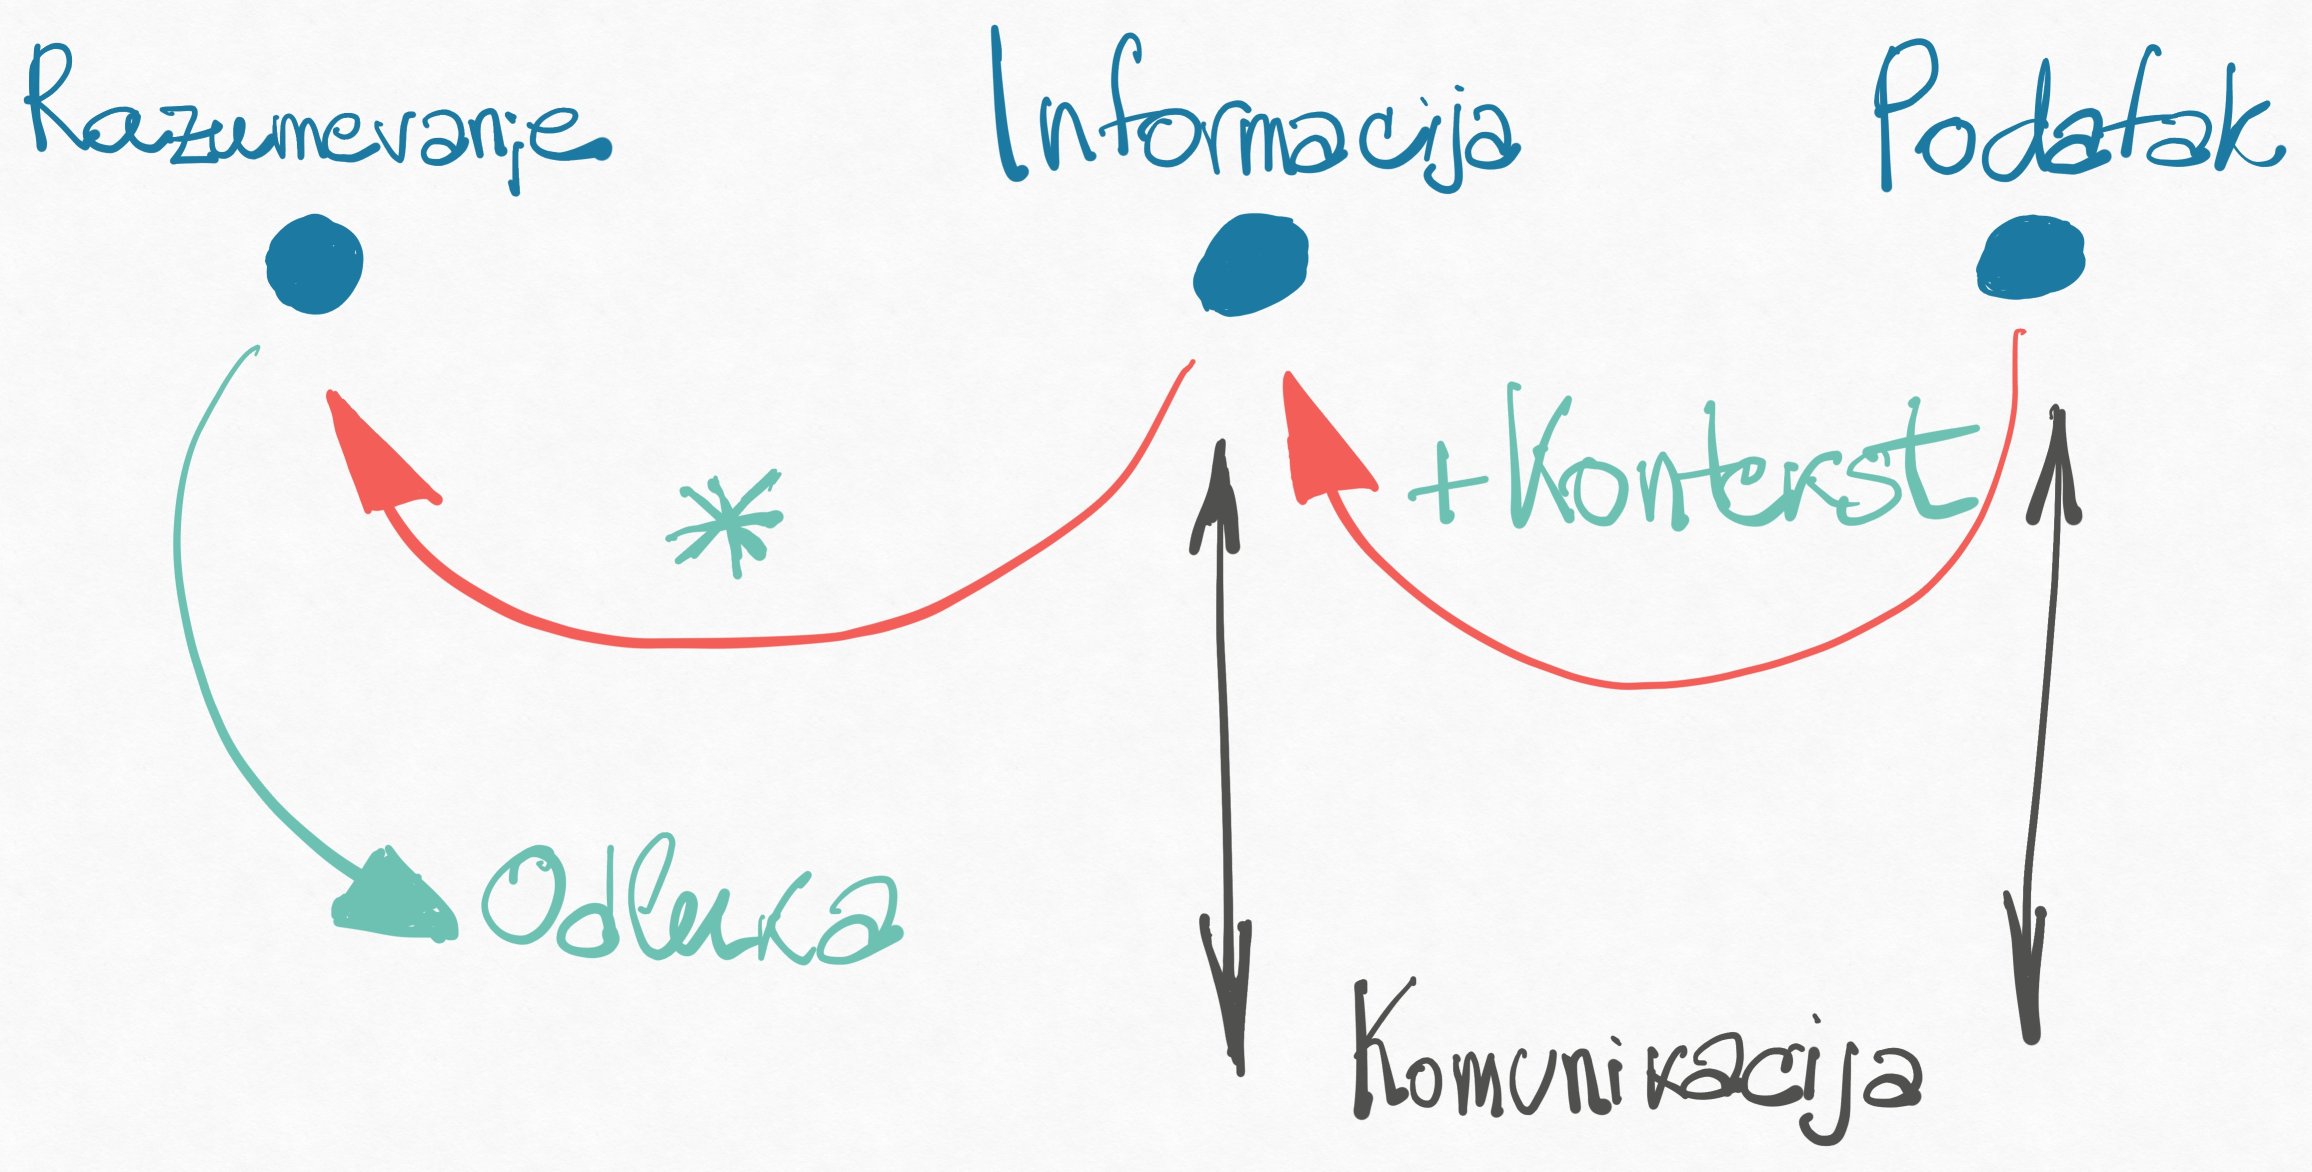 Razumevanje Informacija Podatak
*
+Kontekst
Odluka
Komunikacija